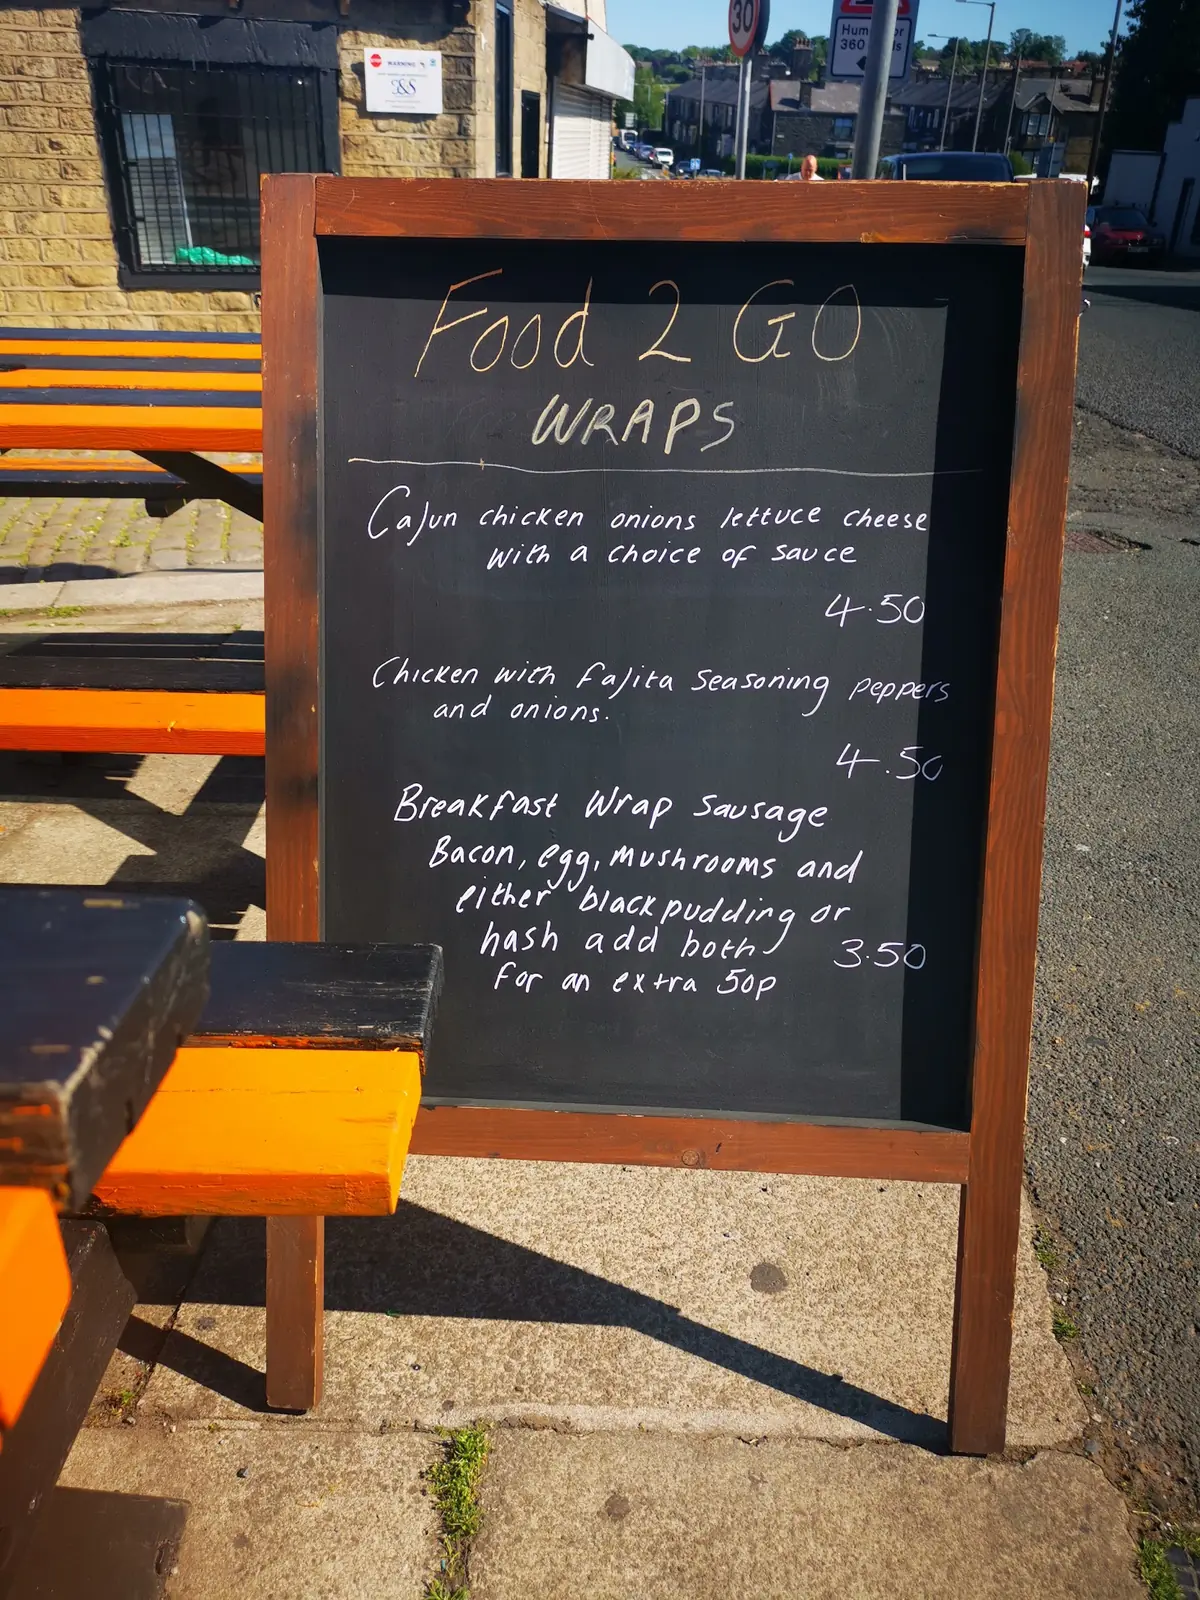 WARNING
S&S
30
Hum for
360 yds
Food 2 GO
WRAPS
Cajun chicken onions lettuce cheese
with a choice of sauce
4.50
Chicken with fajita seasoning peppers
and onions.
4.50
Breakfast Wrap Sausage
Bacon, egg, mushrooms and
either blackpudding or
hash add both 3.50
for an extra 50p